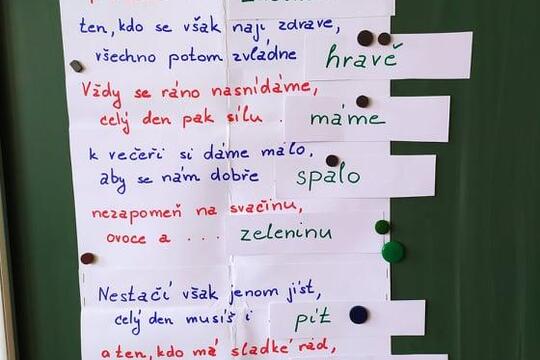 ten, kdo se však nají zdravě,
všechno potom zvládne hravě
Vždy se ráno nasnídáme,
celý den pak sílu . máme
k večeři si dáme málo,
aby se nám dobře spalo
nezapomeň na svačinu,
ovoce a ... zeleninu
Nestačí však jenom jíst,
celý den musíš i pít
a ten, kdo má sladké rád,